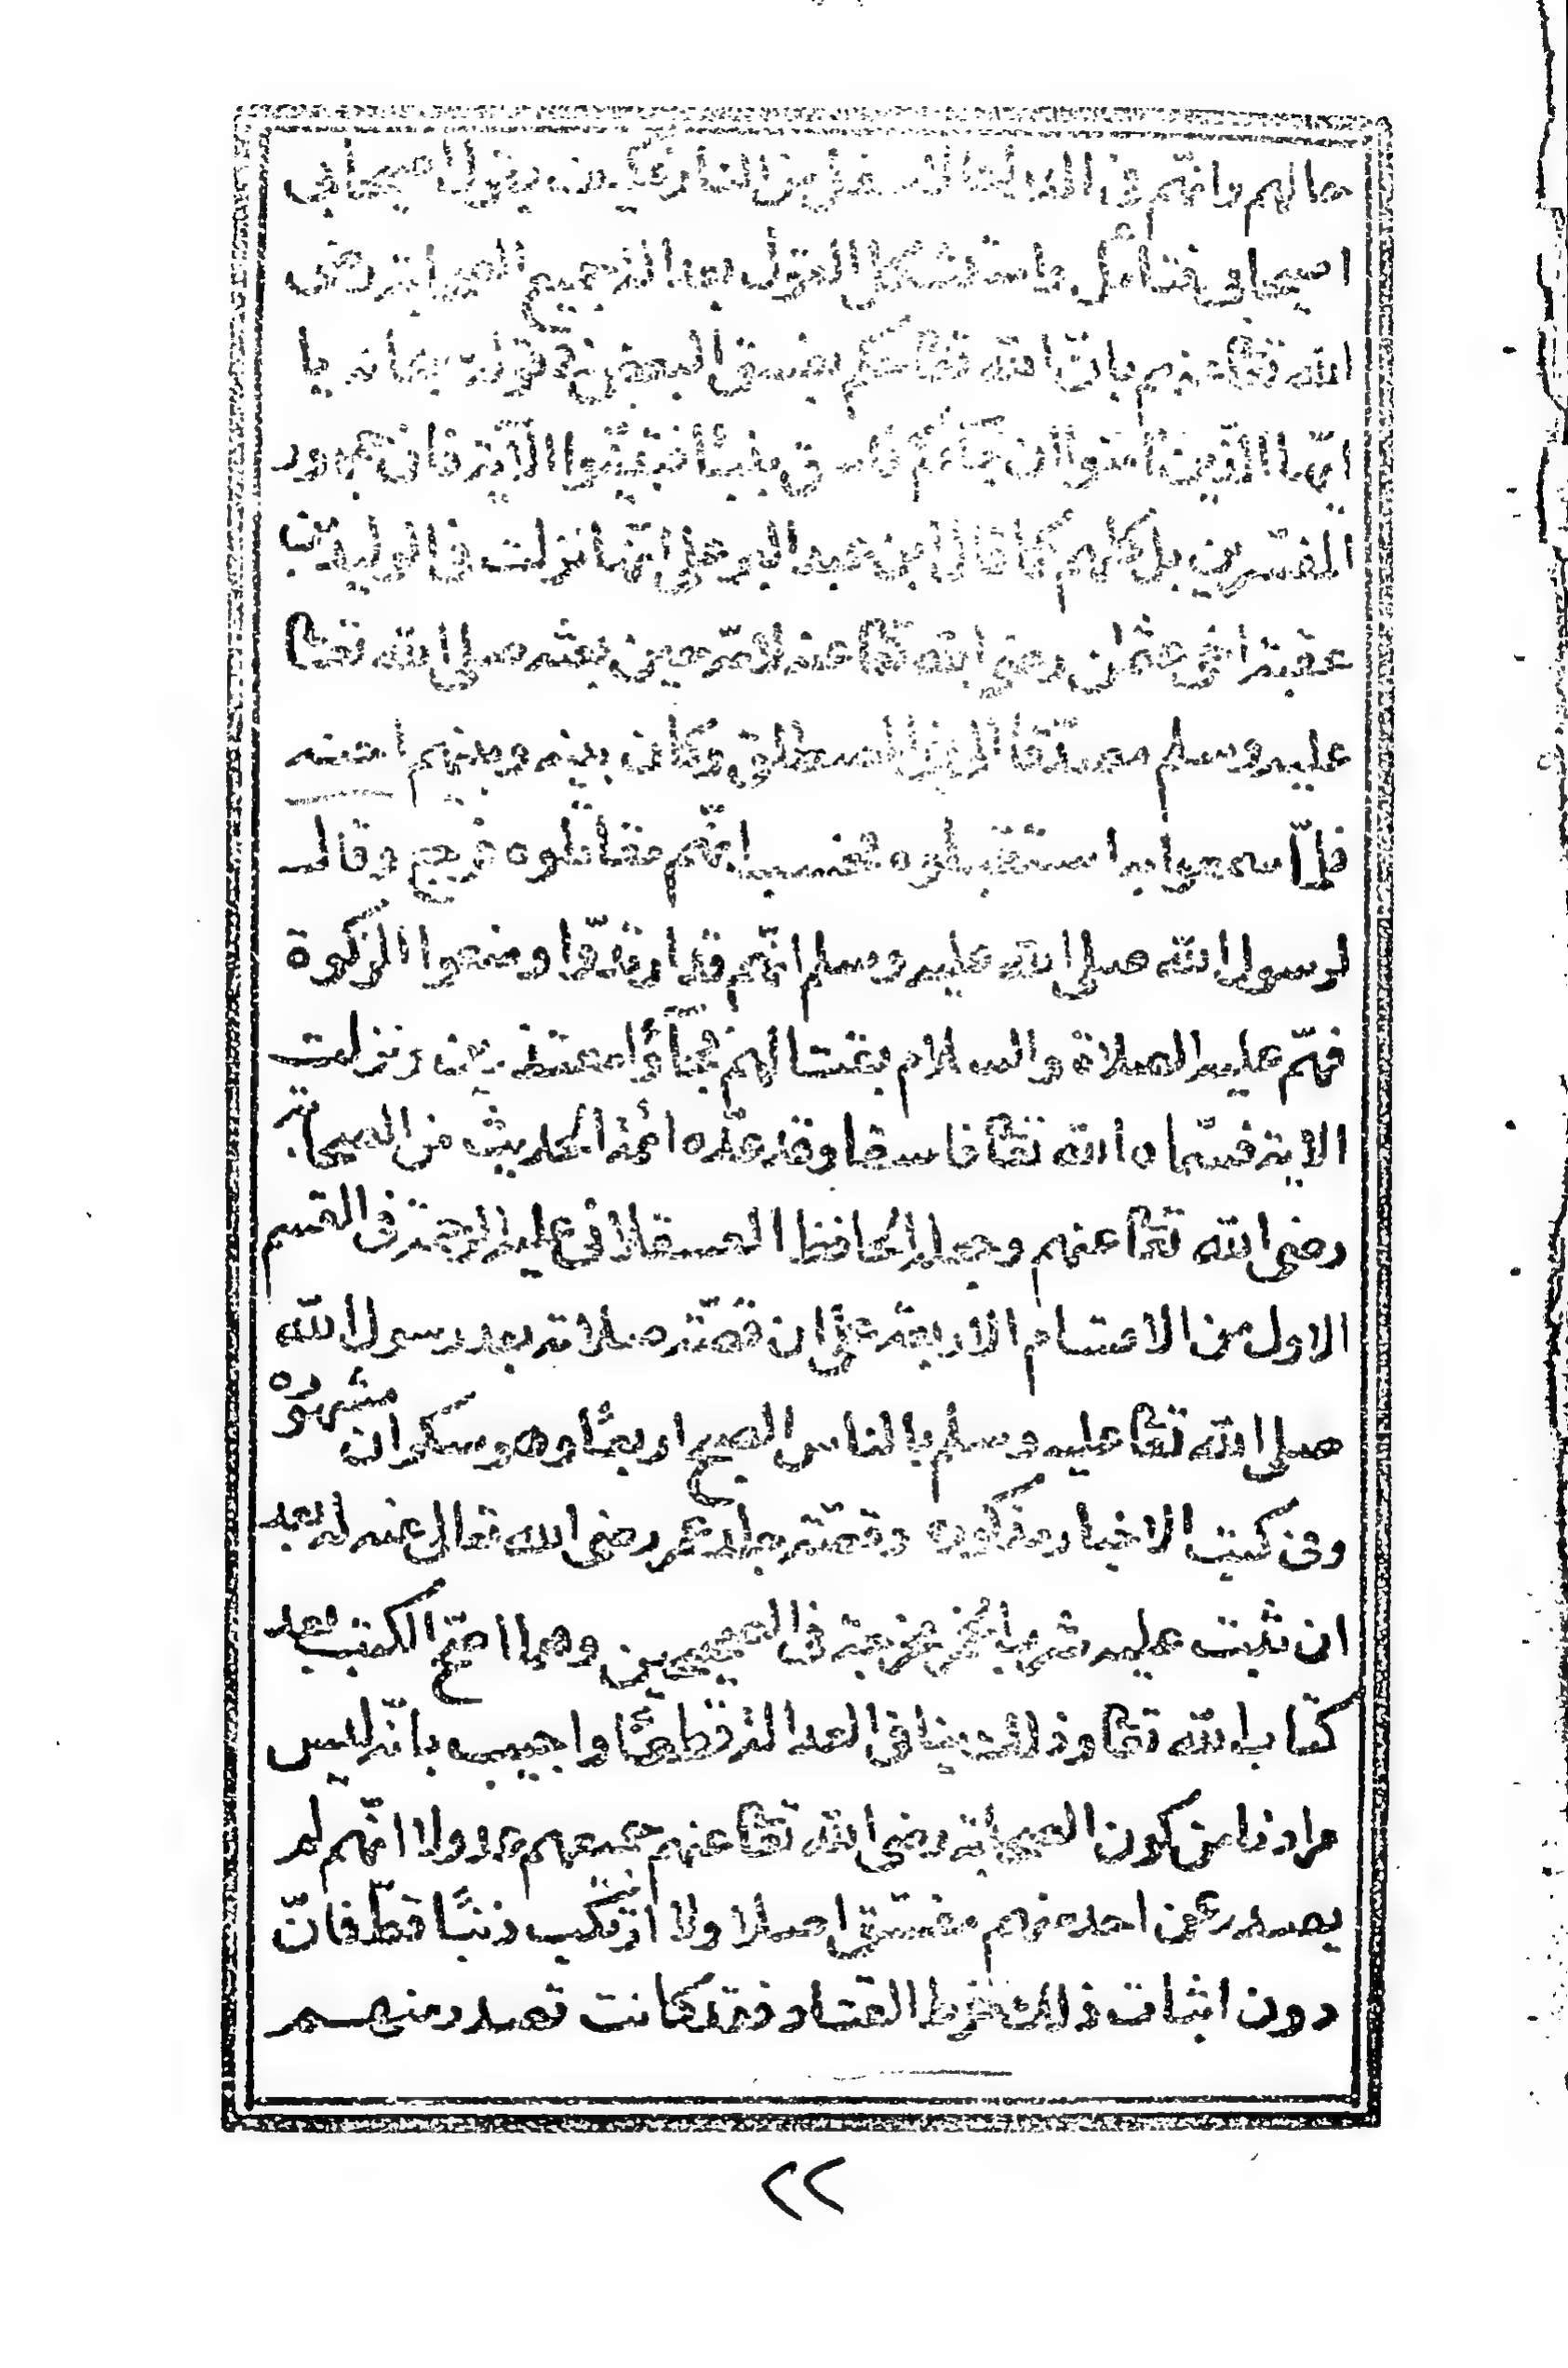 حالهم بانهم في الدرك الاسفل من النار فكيف يقول اصحابي
اصحابي فتأمل واستشكل القول بعدالة جميع الصحابة رضى
الله تعا عنهم بان الله تعا حكم بفسق البعض في قوله سبحانه يا
ايها الذين آمنوا ان جآءكم فاسق بنبأ فتبينوا الآية فان جمهور
المفسرين بل كلهم كما قال ابن عبد البر على انها نزلت في الوليد بن
عقبة اخي عثمان رضي الله تعا عنه لامه حين بعثه صلى الله تعا
عليه وسلم مصدقا الى بني المصطلق وكان بينه وبينهم احنه
فلما سمعوا به استقبلوه فحسب انهم مقاتلوه فرجع وقال
لرسول الله صلى الله عليه وسلم انهم قد ارتدوا ومنعوا الزكوة
فهم عليه الصلاة والسلام بقتالهم فجآؤا معتذرين ونزلت
الاية فسماه الله تعا فاسقا وقد عده ائمة الحديث من الصحابة
رضى الله تعا عنهم وجعله الحافظ العسقلاني عليه الرحمة في القسم
الاول من الاقسام الاربعة على ان قصة صلاته بعد رسول الله
صلى الله تعا عليه وسلم بالناس الصبح اربعًا وهو سكران مشهوره
وفي كتب الاخبار مذكوره وقصة جلد عمر رضى الله تعالى عنه له بعد
ان ثبت عليه شرب الخمر مخرجة في الصحيحين وهما اصح الكتب بعد
كتاب الله تعا وذلك ينافي العدالة قطعًا واجيب بانه ليس
مرادنا من كون الصحابة رضى الله تعا عنهم جميعهم عدولا انهم لم
يصدر عن احد منهم مفسق اصلا ولا ارتكب ذنبًا قط فان
دون اثبات ذلك خرط القتاد فقد كانت تصدر منهم
٢٢